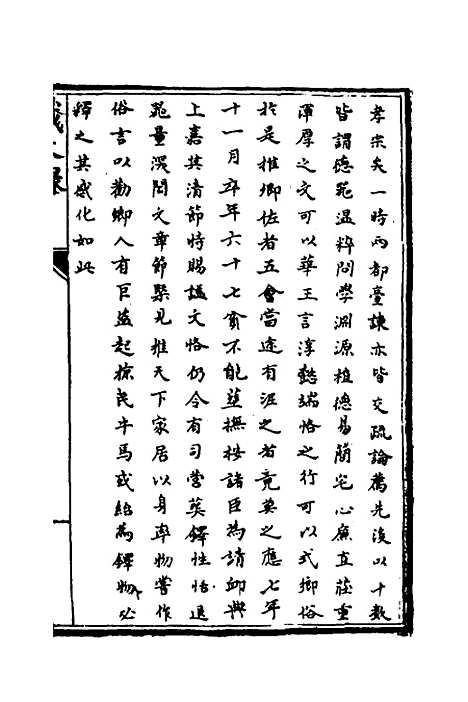 孝宗矣一時兩都臺諫亦皆交疏論薦先後以十數
皆謂德範溫粹問學淵源植德易簡宅心廉直莊重
渾厚之文可以華王言淳懿端恪之行可以式鄉俗
於是推卿佐者五會當途有沮之者竟莫之應七年
十一月卒年六十七貧不能塟撫按諸臣為請卹典
上嘉其清節特賜諡文恪仍令有司營葬鐸性恬退
範量深閎文章節槩見推天下家居以身率物嘗作
俗言以勸鄉人有巨盗起掠民牛馬或紿為鐸物必
釋之其感化如此